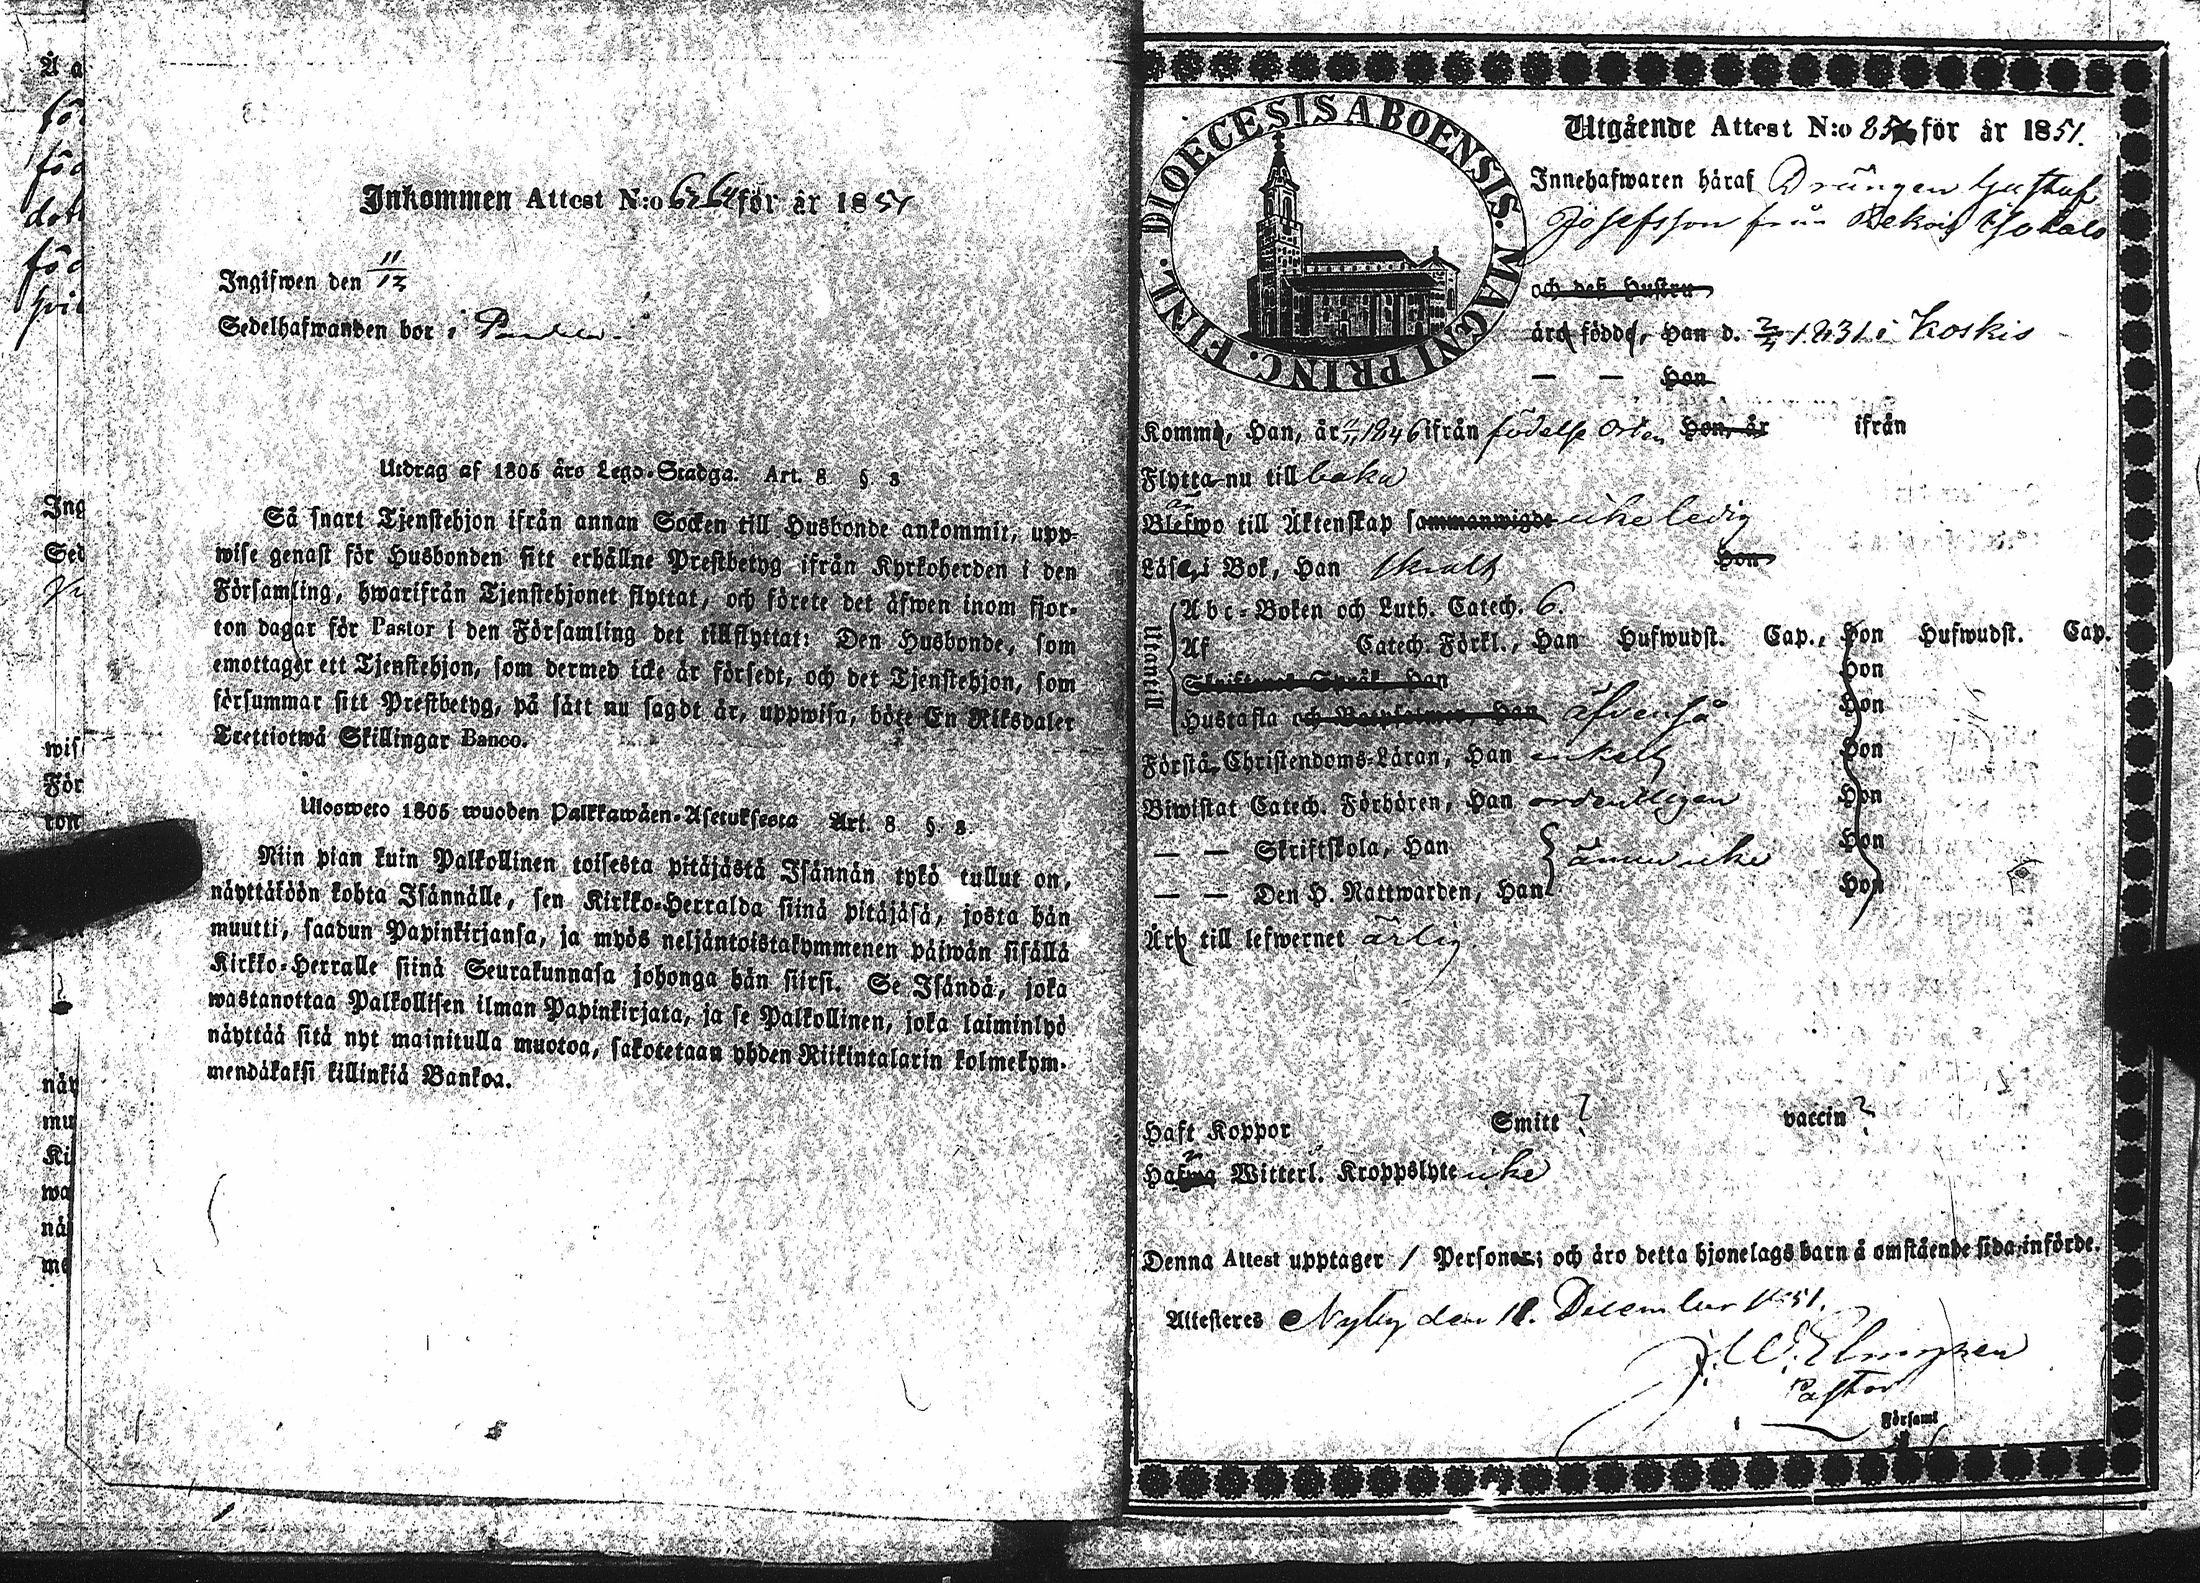 Inkommen Attest N:o för år 1851
Ingifwen den 11/12
Sedelhafwanden bor i
Utdrag af 1805 års Lego-Stadga. Art. 8 §. 3
Så snart Tjenstehjon ifrån annan Socken till Husbonde ankommit, upp-
wise genast för Husbonden sitt erhållne Prestbetyg ifrån Kyrkoherden i den
Församling, hwarifrån Tjenstehjonet flyttat, och förete det äfwen inom fjor-
ton dagar för Pastor i den Församling det tillflyttat: Den Husbonde, som
emottager ett Tjenstehjon, som dermed icke är försedt, och det Tjenstehjon, som
försummar sitt Prestbetyg, på sätt nu sagdt är, uppwisa, böte En Riksdaler
Trettiotwå Skillingar Banco.
Ulosweto 1805 wuoden Palkkawäen-Asetuksesta Art. 8 §. 3.
Niin pian kuin Palkollinen toisesta pitäjästä Isännän tykö tullut on,
näyttäköön kohta Isännälle, sen Kirkko-Herralda siinä pitäjäsä, josta hän
muutti, saadun Papinkirjansa, ja myös neljäntoistakymmenen päiwän sisällä
Kirkko-Herralle siinä Seurakunnasa johonga hän siirsi. Se Isändä, joka
wastanottaa Palkollisen ilman Papinkirjata, ja se Palkollinen, joka laiminlyö
näyttää sitä nyt mainitulla muotoa, sakotetaan yhden Riikintalarin kolmekym-
mendäkaksi killinkiä Bankoa.
DIOECESIS ABOENSIS. MAGNI PRINC. FINL.
Utgående Attest N:o för år 1851.
Innehafwaren häraf Drängen Gustaf
Josefsson från
och deß Hustru
äro födde, Han d. 1831 i Koskis
— — Hon
Komme, Han, år 1846 ifrån födelse Orten Hon, år ifrån
Flytta nu till baka
Blefwo till Äktenskap sammanwigde icke ledig
Läse, i Bok, Han svalt Hon
Utantill
Abc-Boken och Luth. Catech. 6.
Af Catech. Förkl., Han Hufwudst. Cap., Hon Hufwudst. Cap.
Skriftenes Språk Han Hon
Hustafla och Botpsalmer, Han äfvenså Hon
Förstå Christendoms-Läran, Han enkelt Hon
Biwistat Catech. Förhören, Han ordentligen Hon
— — Skriftskola, Han ännu icke Hon
— — Den H. Nattwarden, Han Hon
Äro till lefwernet ärlig.
Haft Koppor Smitt ? vaccin ?
Hafwa Witterl. Kroppslyte icke
Denna Attest upptager / Personer; och äro detta hjonelags barn å omstående sida införde.
Attesteres Nyby den 18. December 1851.
Pastor
i Församl